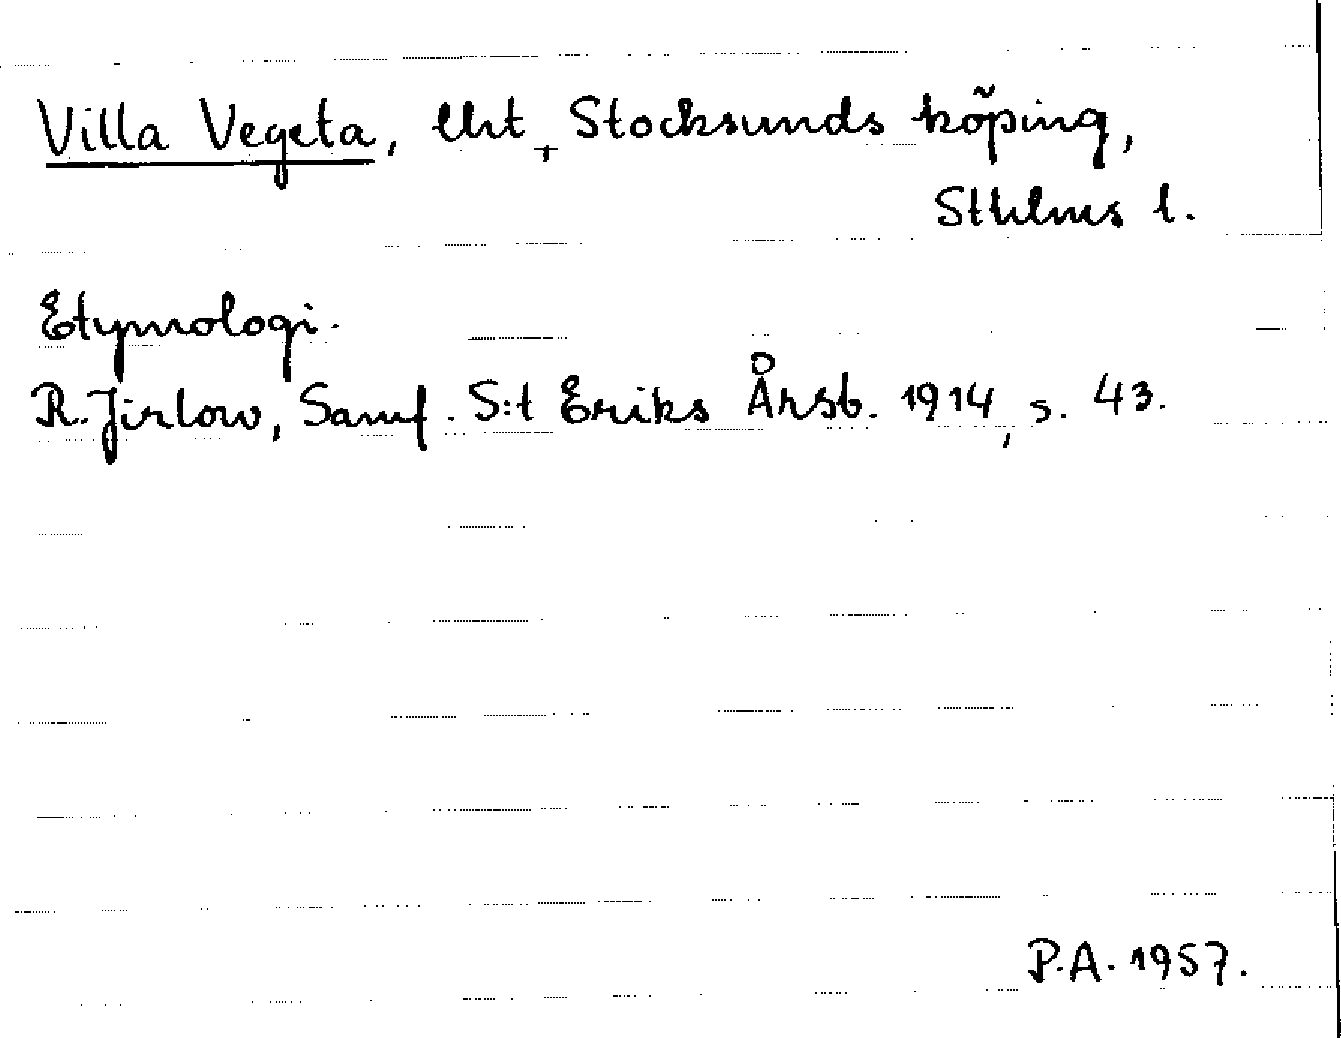 Villa Vegeta, lht, Stocksunds köping,
Sthlms l.
Etymologi.
R. Jirlow, Samf. S:t Eriks Årsb. 1914, s. 43.
P.A. 1957.